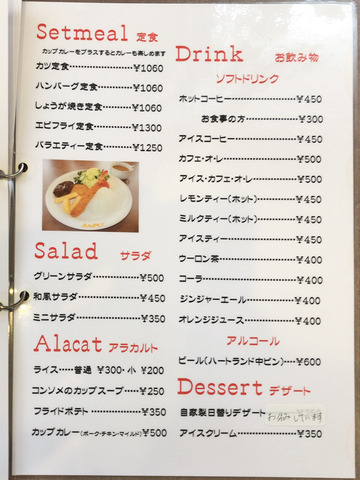 Setmeal 定食
カップカレーをプラスするとカレーも楽しめます
カツ定食…………¥1060
ハンバーグ定食……¥1060
しょうが焼き定食……¥1060
エビフライ定食……¥1300
バラエティー定食……¥1250
Salad サラダ
グリーンサラダ……¥500
和風サラダ…………¥450
ミニサラダ…………¥350
Alacat アラカルト
ライス……普通 ¥300・小 ¥200
コンソメのカップスープ……¥250
フライドポテト……¥350
カップカレー(ポーク・チキン・マイルド)¥500
Drink お飲み物
ソフトドリンク
ホットコーヒー…………¥450
お食事の方……¥300
アイスコーヒー…………¥450
カフェ・オ・レ…………¥500
アイス・カフェ・オ・レ……¥500
レモンティー(ホット)……¥450
ミルクティー(ホット)……¥450
アイスティー…………¥450
ウーロン茶…………¥400
コーラ…………¥400
ジンジャーエール……¥400
オレンジジュース……¥400
アルコール
ビール(ハートランド中ビン)…¥600
Dessert デザート
自家製日替りデザート
アイスクリーム…………¥350